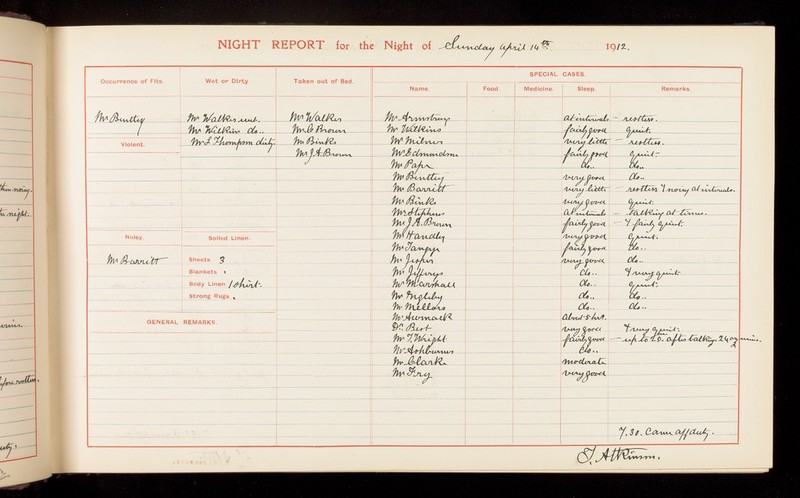 NIGHT REPORT for the Night of Sunday April 14th 1912.
Occurrence of Fits.
Wet or Dirty
Taken out of Bed.
SPECIAL CASES.
Name.
Food.
Medicine.
Sleep.
Remarks.
Mr Walker wet.
Mr Walker
Mr Armstrong at intervals - restless.
Mr Watkins do..
Mr C Brown
Mr Watkins fairly good quiet.
Violent.
Mr J Thompson dirty
Mr Binks
Mr Milnes very little - restless.
Mr J.A. Brown
Mr Edmondson fairly good quiet-
Mr do.. do..
Mr Bentley very good do..
Mr Barritt very little - restless & noisy at intervals.
Mr Binks very good quiet.
Mr Stephens at intervals - talking at times.
Mr J.A. Brown fairly good - & fairly quiet.
Noisy.
Soiled Linen.
Mr Handley very good quiet.
Mr fairly good do..
Mr Barritt
Sheets 3
Mr very good do..
Blankets
Mr Jefferys do.. & very quiet-
Body Linen 1 shirt.
Mr Marshall do.. quiet.
Strong Rugs
Mr Ingleby do.. do..
Mr Mellors do.. do..
GENERAL REMARKS.
Mr about 5 hrs.
Dr. very good & very quiet.
Mr T. Wright fairly good - up to after talking
Mr Ashburner do..
Mr Clark moderate
Mr Fry very good
7.30. Came off duty.
J. Atkinson.